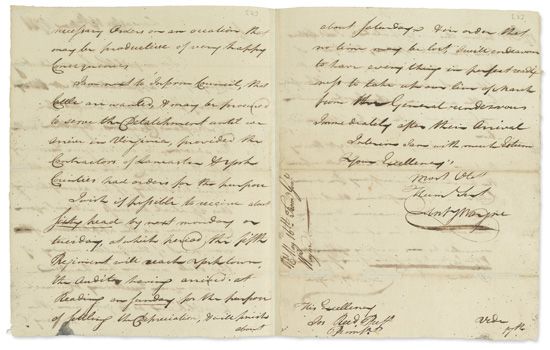 necessary Orders on an occation that
may be productive of very happy
Consequences
I am next to inform Council, that
Cattle are wanted, & may be procured
to serve the Detachment until we
arrive in Virginia, provided the
Contractors of Lancaster & York
Counties had orders for the purpose
I wish if possible to receive about
Sixty head by next monday or
tuesday, at which period the fifth
Regiment will reach York town
the Auditors having arrived at
Reading on Sunday for the purpose
of settling the Depreciation, & will finish
about
about Saturday & in order that
no time may be lost I will endeavour
to have every thing in perfect readi
ness to take up our line of March
from the General rendezvous
Immediately after their Arrival
Interim I am with much Esteem
Your Excellency's
Most Obt
Huml Sert
Anty Wayne
His Excellency
Jos Reed
May 16th
Wayne